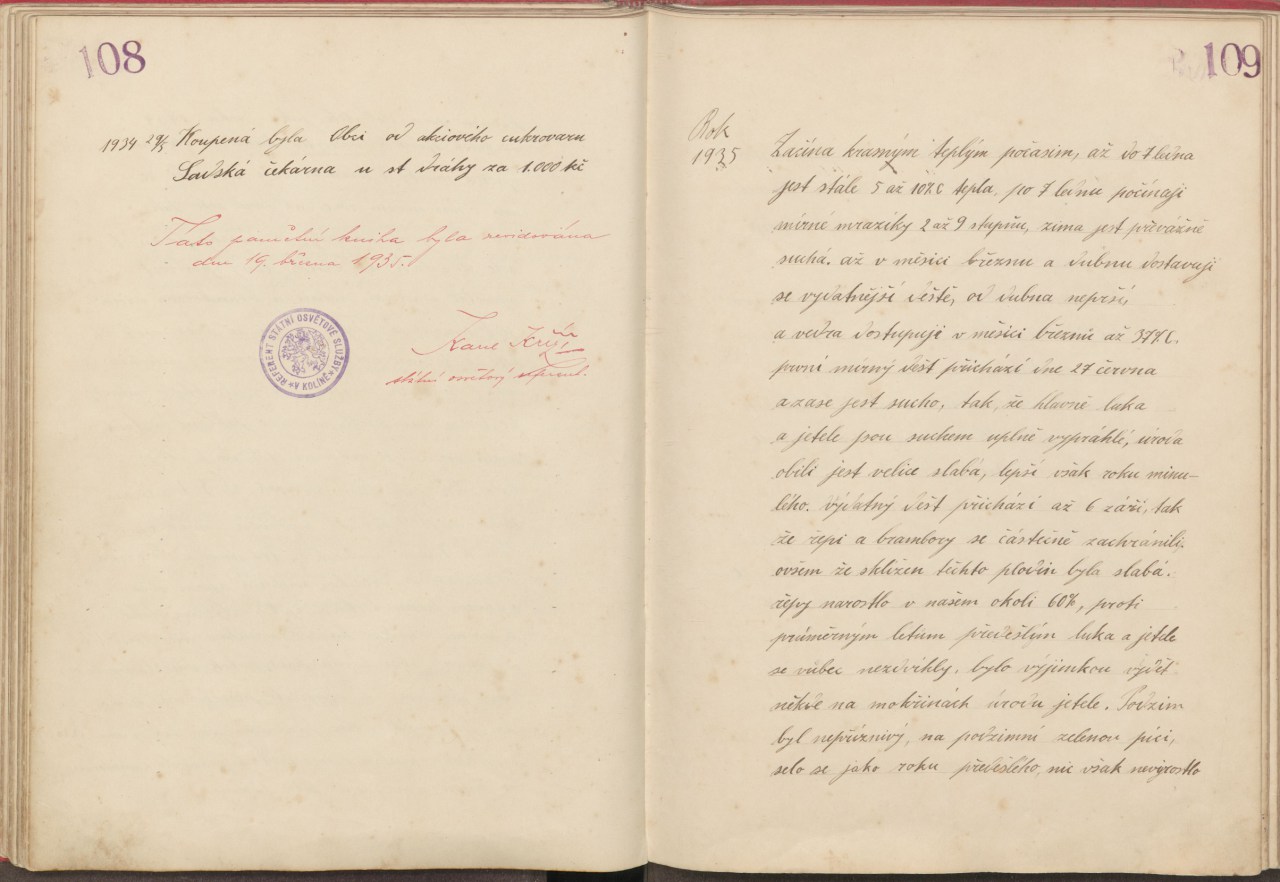 108
1934 29/5 Koupená byla Obci od akciového cukrovaru
Sadská čekárna u st dráhy za 1.000 Kč
Tato pamětní kniha byla revidována
dne 19. března 1935.
REFERENT STÁTNÍ OSVĚTOVÉ SLUŽBY
* V KOLÍNĚ *
Karel
státní osvětový referent.
109
Rok
1935
Začína krasným teplým počasim, až do 7 ledna
jest stále 5 až 10% C tepla, po 7 lednu počínaji
mírné mraziky 2 až 9 stupňu, zima jest převážně
suchá. až v měsici březnu a dubnu dostavuji
se vydatnější deště, od dubna neprší,
a vedra dostupuji v měsíci březnu až 37% C.
prvni mirný dešt přichází dne 27 června
a zase jest sucho, tak, že hlavně luka
a jetele jsou suchem uplně vypráhlé, úroda
obili jest velice slabá, lepší však roku minu-
lého. Výdatný dešt přichází až 6 záři, tak
že řepi a brambory se částečně zachránili.
ovšem že sklizen těchto plodin byla slabá.
řepy narostlo v našem okoli 60%, proti
průměrným letum předešlým luka a jetele
se vubec nezdvihly, bylo výjimkou vydět
někde na mokřinách úrodu jetele. Podzim
byl nepříznivý, na podzimní zelenou pici,
selo se jako roku předešlého, nic však nevyrostlo